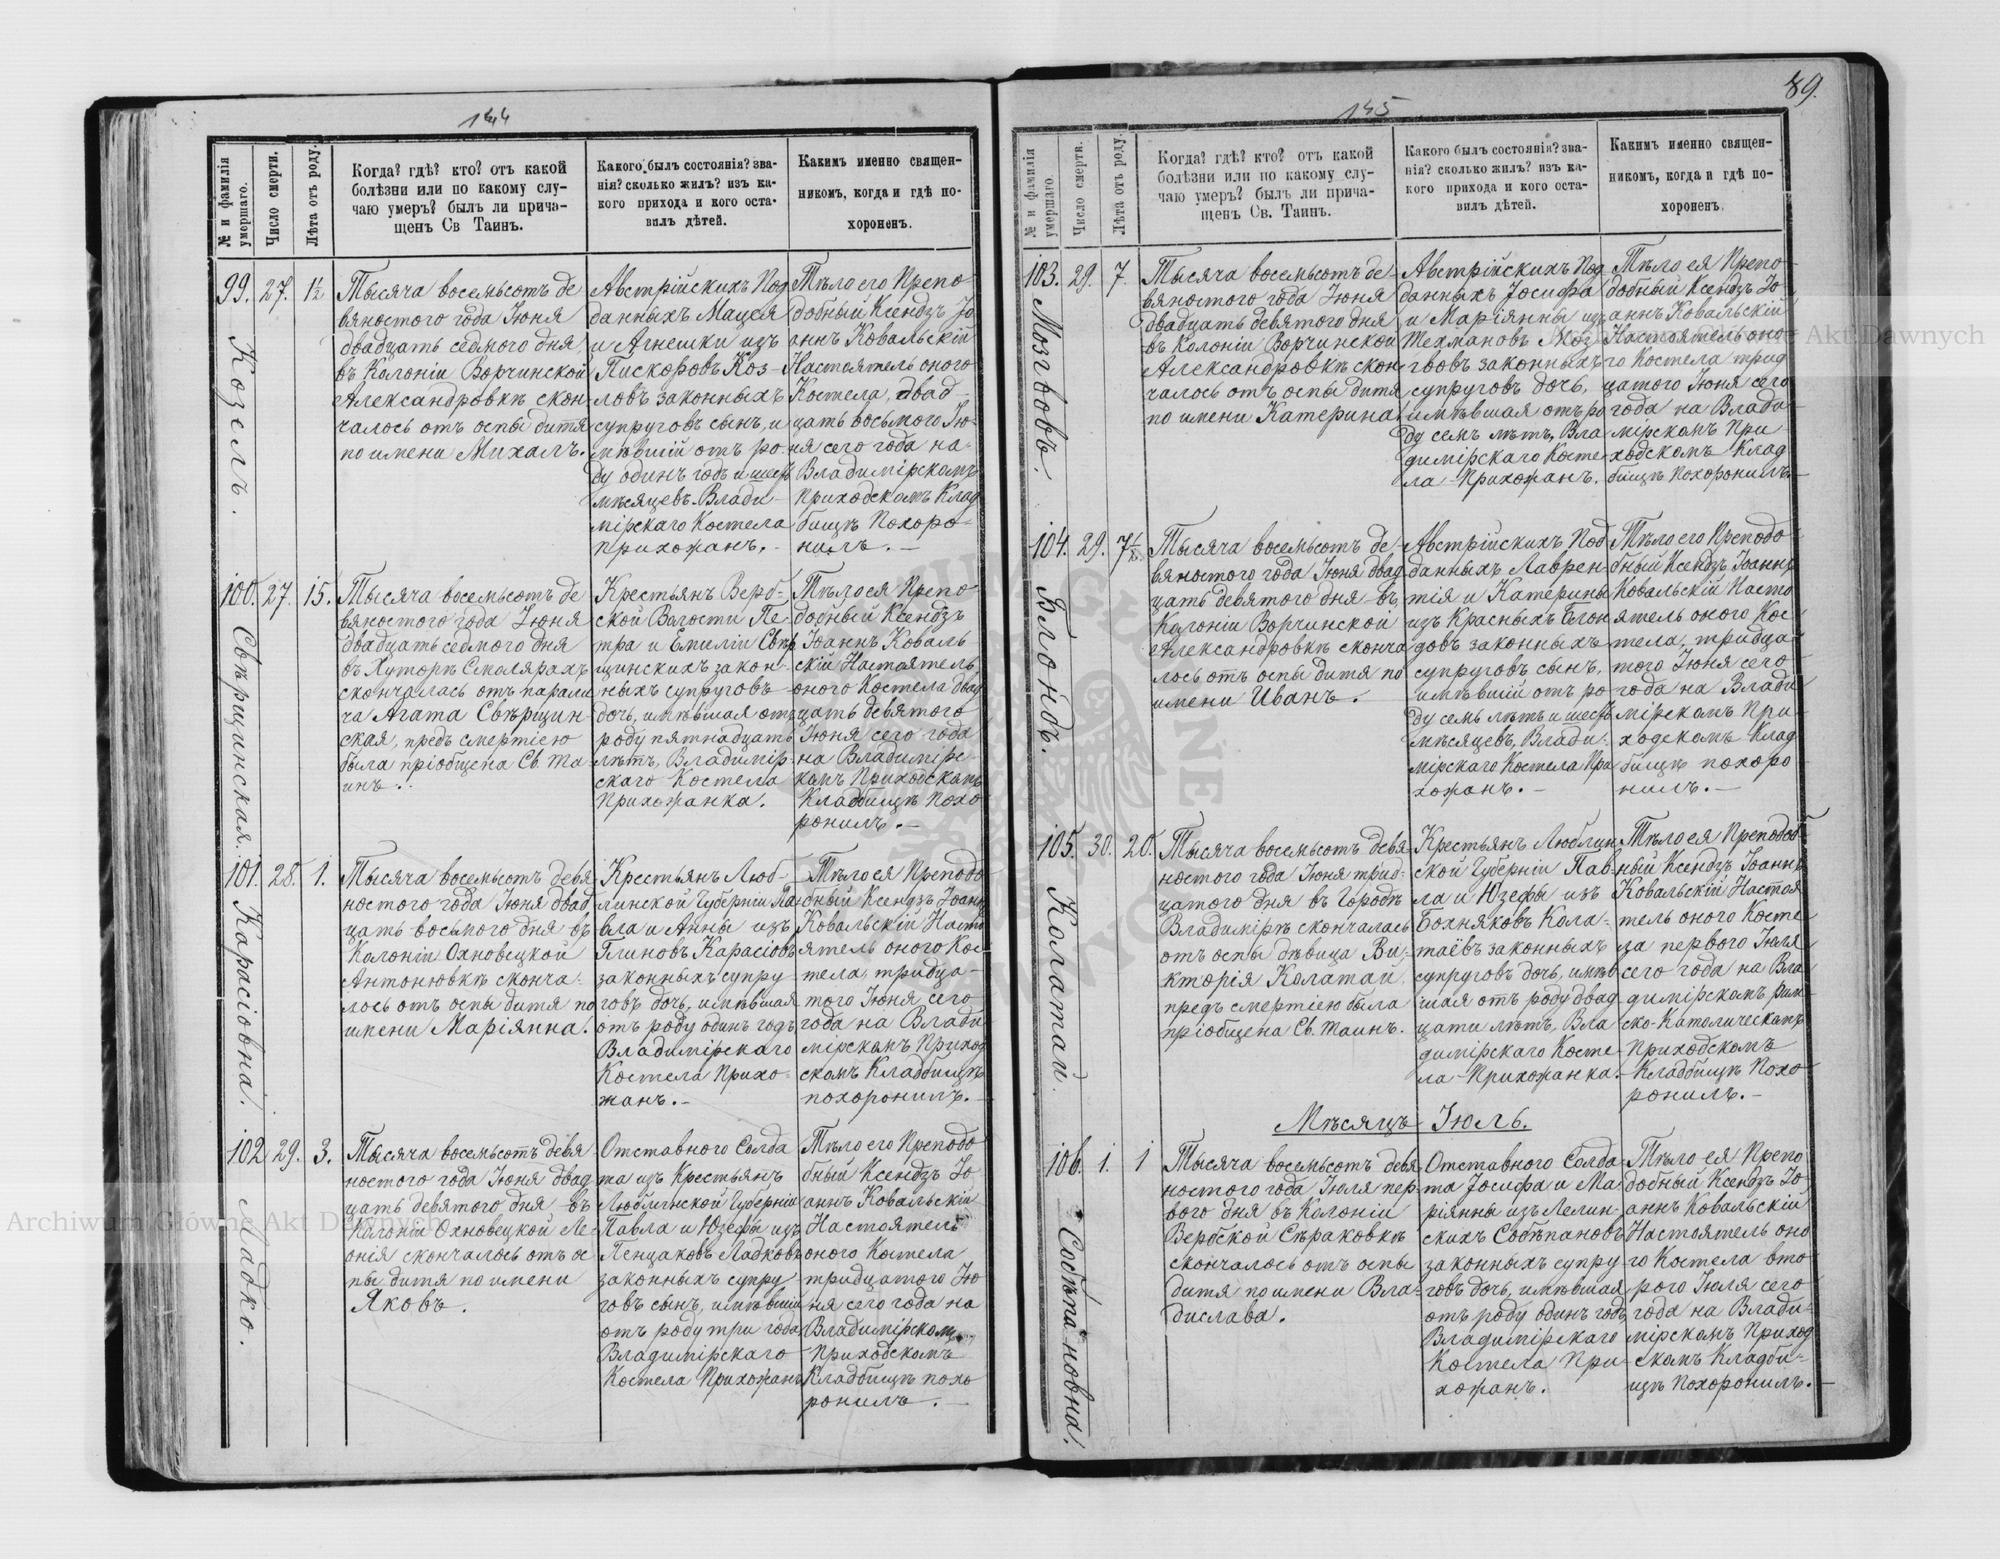 144
№ и фамилія умершаго.
Число смерти.
Лѣта отъ роду.
Когда? гдѣ? кто? отъ какой
болѣзни или по какому слу-
чаю умеръ? былъ ли прича-
щенъ Св Таинъ.
Какого былъ состоянія? зва-
нія? сколько жилъ? изъ ка-
кого прихода и кого оста-
вилъ дѣтей.
Каким​ъ именно священ-
никомъ, когда и гдѣ по-
хороненъ.
99. 27. 1½
Козелъ.
Тысяча восемьсотъ де
вяностого года Іюня
двадцать седмого дня,
въ Колоніи Ворчинской
Александровкѣ скон
чалось отъ оспы дитя
по имени Михалъ.
Австрійскихъ Под
данныхъ Мацея
и Агнешки изъ
Пискоровъ Коз-
ловъ законныхъ
супруговъ сынъ, и
мѣвшій отъ ро
ду одинъ годъ и шесть
мѣсяцевъ. Влади-
мірскаго Костела
прихожанъ. -
Тѣло его Препо
добный Ксендзъ Іо
аннъ Ковальскій
Настоятель оного
Костела, двад-
цать восьмого Ію-
ня сего года на
Владимірскомъ
Приходскомъ Клад
бищѣ Похоро-
нилъ. -
100. 27. 15.
Свѣрщинская.
Тысяча восемьсотъ де
вяностого года Іюня
двадцать седмого дня
въ Хуторѣ Смолярахъ
скончалась отъ парали
ча Агата Свѣрщин
ская, предъ смертіею
была пріобщена Св. Та
инъ.
Крестьянъ Верб-
ской Волости Пе
тра и Емиліи Свѣр
щинскихъ закон-
ныхъ супруговъ
дочь, имѣвшая отъ
роду пятнадцать
лѣтъ, Владимір
скаго Костела
Прихожанка.
Тѣло ея Препо
добный Ксендзъ
Іоаннъ Коваль
скій Настоятель
оного Костела два
дцать девятого
Іюня сего года
на Владимірс-
комъ Приходскомъ
Кладбищѣ Похо
ронилъ. -
101. 28. 1.
Карасіовна.
Тысяча восемьсотъ девя
ностого года Іюня двад
цать восьмого дня въ
Колоніи Охновецкой
Антонювкѣ сконча-
лось отъ оспы дитя по
имени Маріянна.
Крестьянъ Люб-
линской Губерніи Па
вла и Анны изъ
Глиновъ Карасіовъ
законныхъ супру
говъ дочь, имѣвшая
отъ роду одинъ годъ
Владимірскаго
Костела Прихо-
жанъ. -
Тѣло ея Преподо
бный Ксендзъ Іоаннъ
Ковальскій Насто
ятель оного Кос-
тела, тридца-
того Іюня сего
года на Влади
мірскомъ Приход
скомъ Кладбищѣ
похоронилъ. -
102 29. 3.
Ладко.
Тысяча восемьсотъ девя
ностого года Іюня двад
цать девятого дня въ
Колоніи Охновецкой Ле-
онія скончалось отъ ос
пы дитя по имени
Яковъ.
Отставного Солда
та изъ Крестьянъ
Люблинской Губерніи
Павла и Юзефы изъ
Пенцаковъ Ладковъ
законныхъ супру
говъ сынъ, имѣвшій
отъ роду три года,
Владимірскаго
Костела Прихожанъ
Тѣло его Преподо
бный Ксендзъ Іо
аннъ Ковальскій
Настоятель
оного Костела
тридцатого Ію
ня сего года на
Владимірскомъ
Приходскомъ
Кладбищѣ похо
ронилъ. -
145
89.
№ и фамилія умершаго.
Число смерти.
Лѣта отъ роду.
Когда? гдѣ? кто? отъ какой
болѣзни или по какому слу-
чаю умеръ? былъ ли прича-
щенъ Св. Таинъ.
Какого былъ состоянія? зва-
нія? сколько жилъ? изъ ка-
кого прихода и кого оста-
вилъ дѣтей.
Какимъ именно священ-
никомъ, когда и гдѣ по-
хороненъ.
103. 29. 7.
Мозговъ.
Тысяча восемьсотъ де-
вяностого года Іюня
двадцать девятого дня
въ Колоніи Ворчинской
Александровкѣ скон
чалось отъ оспы дитя
по имени Катерина
Австрійскихъ Под
данныхъ Іосифа
и Маріянны изъ
Техмановъ Моз
говъ законныхъ
супруговъ дочь,
имѣвшая отъ ро
ду семь лѣтъ, Вла
димірскаго Косте
ла Прихожанъ.
Тѣло ея Препо-
добный Ксендзъ Іо-
аннъ Ковальскій
Настоятель оно
го Костела трид
цатого Іюня сего
года на Влади
мірскомъ При-
ходскомъ Клад
бищѣ Похоронилъ. -
104. 29. 7½.
Блондъ.
Тысяча восемьсотъ де-
вяностого года Іюня двад
цать девятого дня въ
Колоніи Ворчинской
Александровкѣ сконча
лось отъ оспы дитя по
имени Иванъ.
Австрійскихъ Под
данныхъ Лаврен-
тія и Катерины
изъ Красныхъ Блон
довъ законныхъ
супруговъ сынъ,
имѣвшій отъ ро
ду семь лѣтъ и шесть
мѣсяцевъ, Влади-
мірскаго Костела При
хожанъ. -
Тѣло его Преподо
бный Ксендзъ Іоаннъ
Ковальскій Насто
ятель оного Кос
тела, тридца-
того Іюня сего
года на Влади
мірскомъ При-
ходскомъ Клад
бищѣ похоро
нилъ. -
105. 30. 20.
Колатай
Тысяча восемьсотъ девя-
ностого года Іюня трид-
цатого дня въ Городѣ
Владимірѣ скончалась
отъ оспы дѣвица Ви-
кторія Колатай
предъ смертіею была
пріобщена Св. Таинъ.
Крестьянъ Люблин
ской Губерніи Пав
ла и Юзефы изъ
Бохняковъ Кола-
таёвъ законныхъ
супруговъ дочь, имѣв
шая отъ роду двад
цати лѣтъ, Вла
димірскаго Косте
ла Прихожанка.
Тѣло ея Преподоб
ный Ксендзъ Іоаннъ
Ковальскій Настоя
тель оного Косте
ла первого Іюля
сего года на Вла
димірскомъ Рим-
ско-Католическомъ
Приходскомъ
Кладбищѣ Похо
ронилъ. -
Мѣсяцъ Іюль.
106. 1. 1
Собѣпановна.
Тысяча восемьсотъ девя
ностого года Іюля пер-
вого дня въ Колоніи
Вербской Сѣраковкѣ
скончалось отъ оспы
дитя по имени Вла-
дислава.
Отставного Солда-
та Іосифа и Ма
ріянны изъ Лелин-
скихъ Собѣпановъ
законныхъ супру
говъ дочь, имѣвшая
отъ роду одинъ годъ,
Владимірскаго
Костела При-
хожанъ.
Тѣло ея Препо
добный Ксендзъ Іо-
аннъ Ковальскій
Настоятель оно
го Костела вто
рого Іюля сего
года на Влади-
мірскомъ Приход
скомъ Кладби-
щѣ Похоронилъ. -
Archiwum Główne Akt Dawnych
Archiwum Główne Akt Dawnych